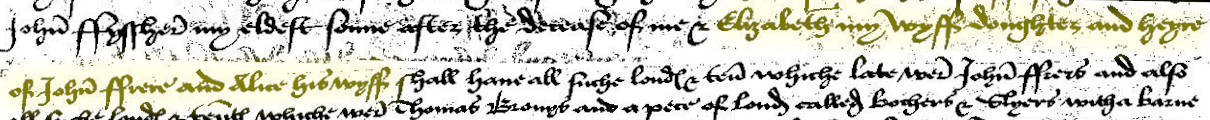 John ffyssher my eldest sonne after the decease of me & Elizabeth my wyff doughter and heyre
of John ffrere and Alice his wyff shall have all suche lond & ten whiche late wer John ffrers and also
all suche lond & tent whiche wer Thomas Brongs and a pece of lond called Bochers & Slyers with a barne